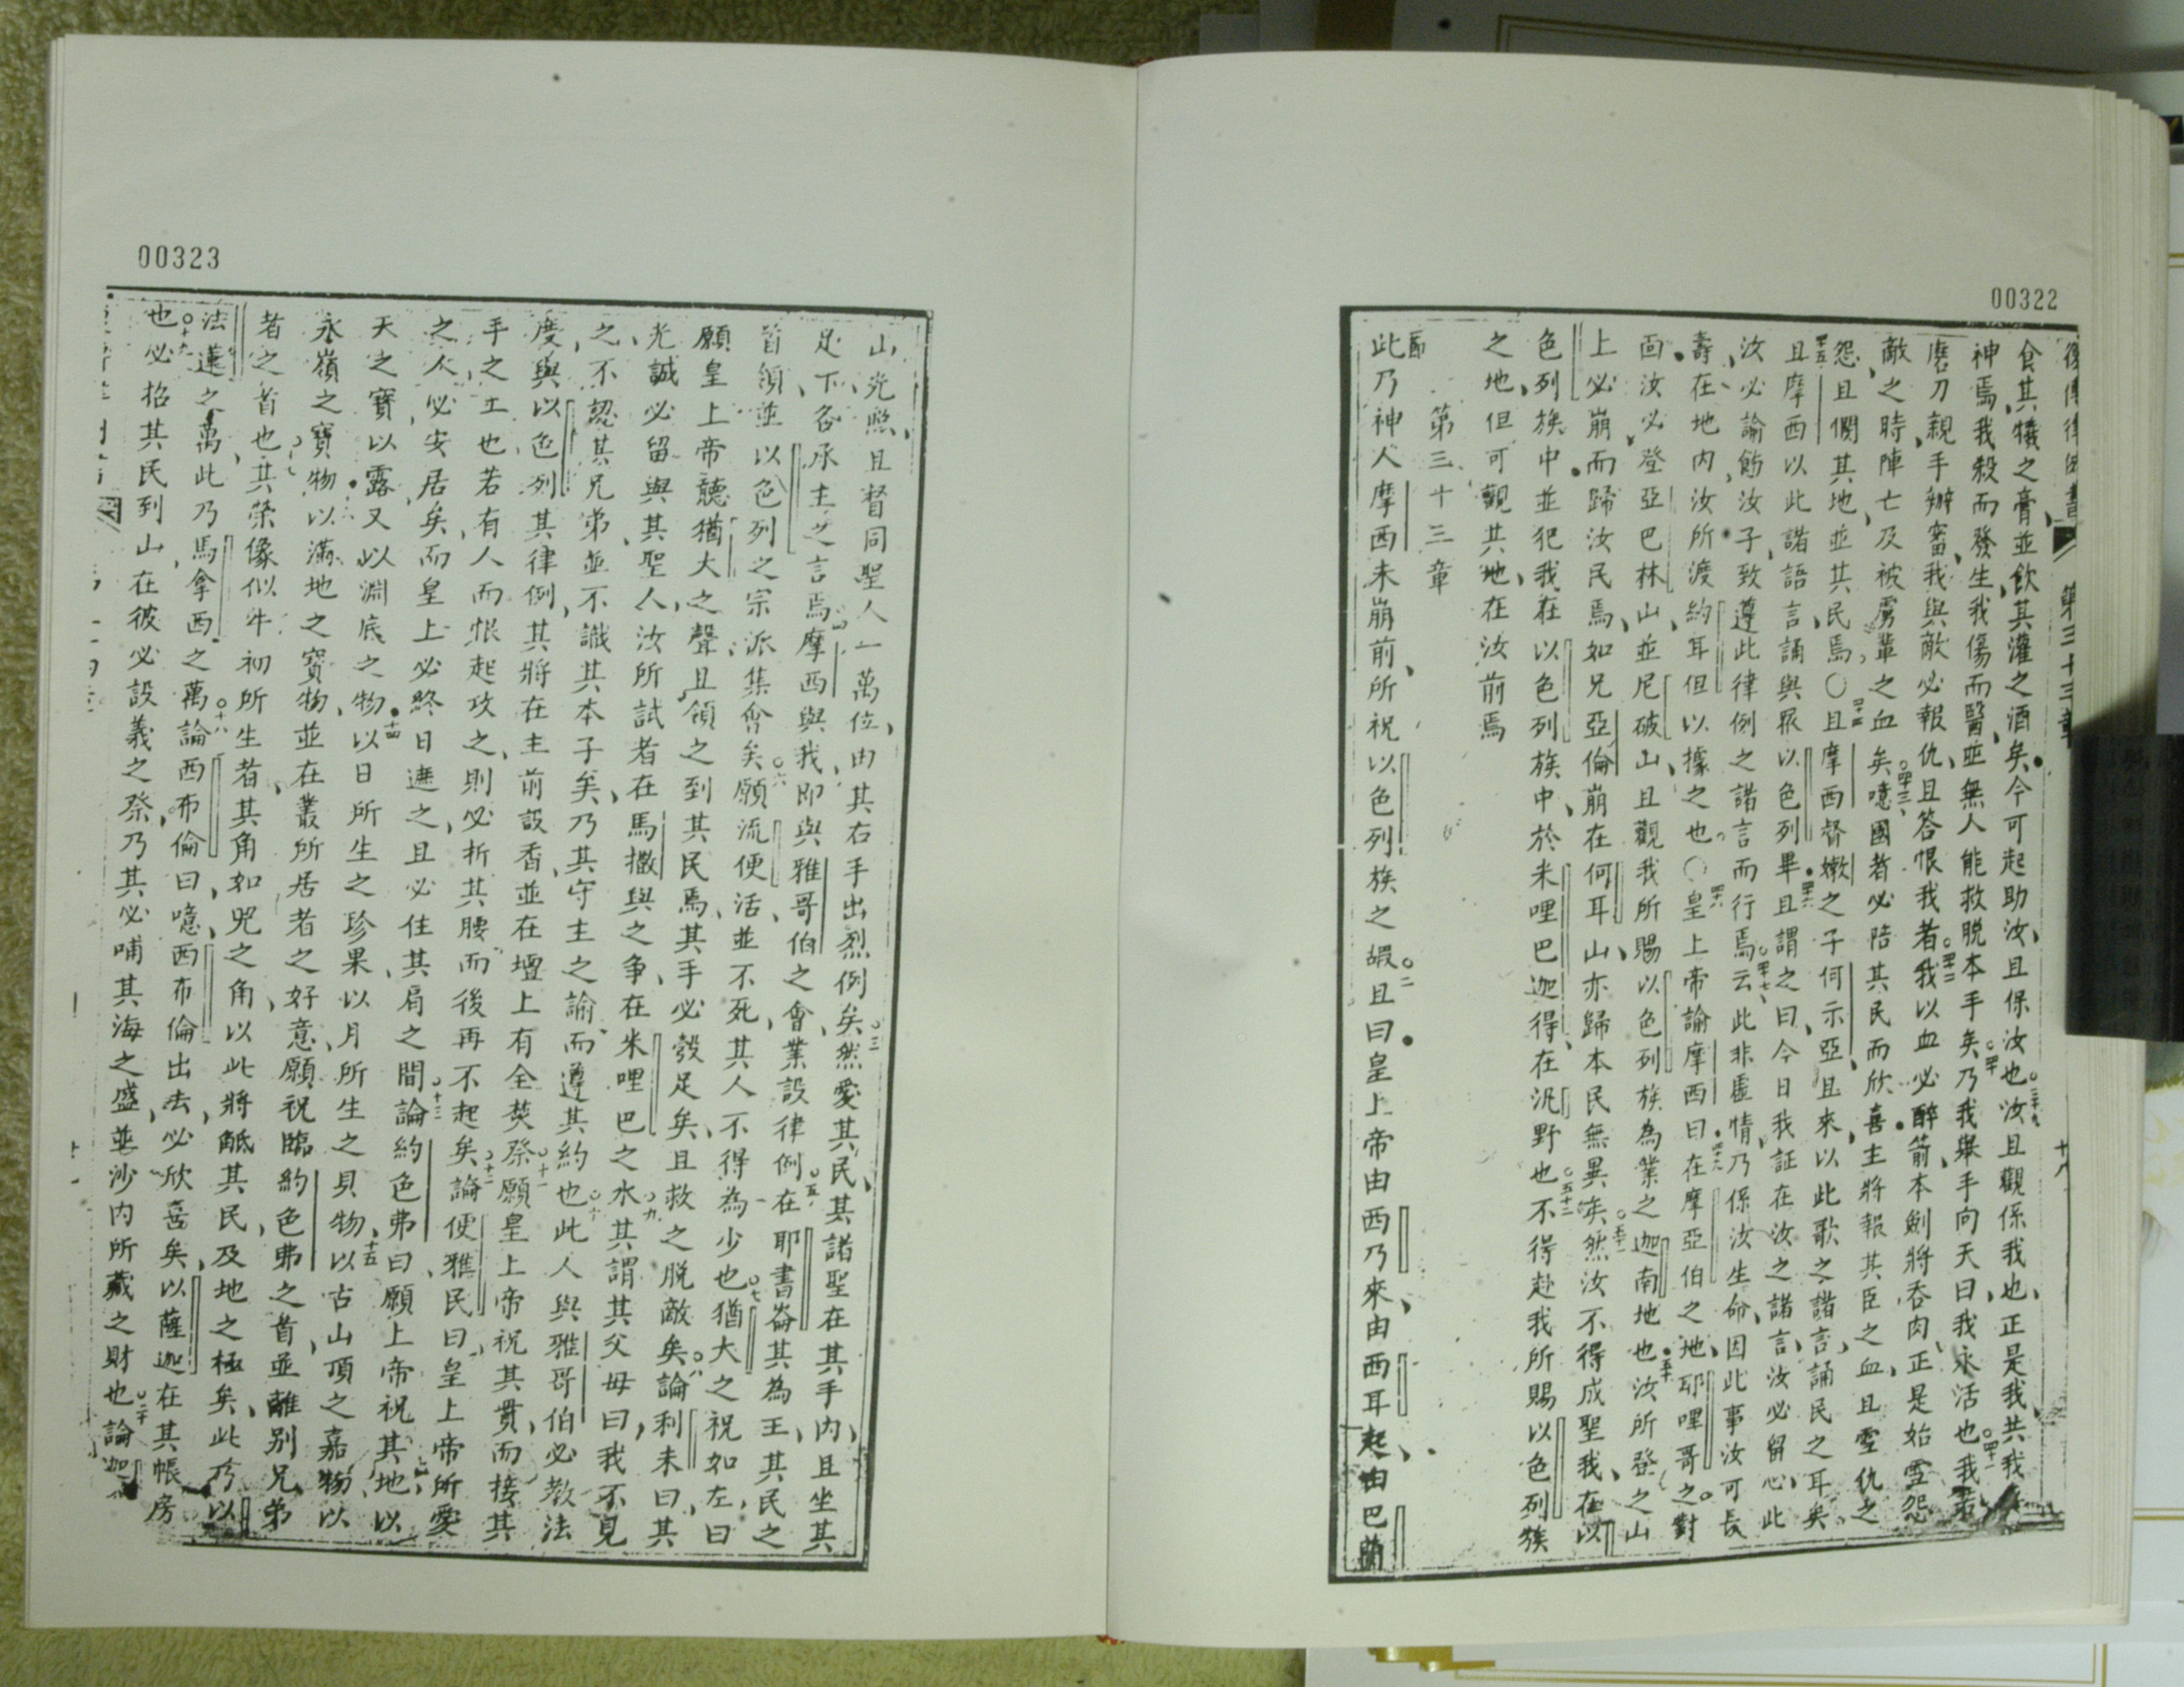 00322
復傳律例書 第三十三章 十八
食其犧之膏並飲其灌之酒矣今可起助汝且保汝也汝且觀係我也正是我共我
神焉我殺而發生我傷而醫並無人能救脫本手矣乃我舉手向天曰我永活也我
磨刀親手辦審我與敵必報仇且答恨我者我以血必醉箭本劍將吞肉正是始雪怨
敵之時陣亡及被虜輩之血矣噫國者必陪其民而欣喜主將報其臣之血且雪仇之
怨且憫其地並其民焉〇且摩西督嫩之子何示亞且來以此歌之諸言誦民之耳矣
且摩西以此諸語言誦與眾以色列畢且謂之曰今日我証在汝之諸言汝必留心此
汝必論飭汝子致遵此律例之諸言而行焉云此非虛情乃係汝生命因此事汝可長
壽在地內汝所渡約耳但以據之也〇皇上帝論摩西曰在摩亞伯之地耶哩哥之對
面汝必登亞巴林山並尼破山且觀我所賜以色列族為業之迦南地也汝所登之山
上必崩而歸汝民焉如兄亞倫崩在何耳山亦歸本民無異矣然汝不得成聖我在以
色列族中並犯我在以色列族中於米哩巴迦得在汎野也不得赴我所賜以色列族
之地但可觀其地在汝前焉
第三十三章
此乃神人摩西未崩前所祝以色列族之嘏且曰皇上帝由西乃來由西耳起由巴蘭
00323
山光照且督同聖人一萬位由其右手出烈例矣然愛其民其諸聖在其手內且坐其
足下各承主之言焉摩西與我即與雅哥伯之會業設律例在耶書崙其為王其民之
首領並以色列之宗派集會矣願流便活並不死其人不得為少也猶大之祝如左曰
願皇上帝聽猶大之聲且領之到其民焉其手必彀足矣且救之脫敵矣論利未曰其
光誠必留與其聖人汝所試者在馬撒與之爭在米哩巴之水其謂其父母曰我不見
之不認其兄弟並不識其本子矣乃其守主之諭而遵其約也此人與雅哥伯必教法
度與以色列其律例其將在主前設香並在壇上有全焚祭願皇上帝祝其貫而接其
手之工也若有人而恨起攻之則必折其腰而後再不起矣論便雅民曰皇上帝所愛
之人必安居矣而皇上必終日遮之且必住其肩之間論約色弗曰願上帝祝其地以
天之寶以露又以淵底之物以日所生之珍果以月所生之貝物以古山頂之嘉物以
永嶺之寶物以滿地之寶物並在叢所居者之好意願祝臨約色弗之首並離別兄弟
者之首也其榮像似牛初所生者其角如兕之角以此將觝其民及地之極矣此乃以
法蓮之萬此乃馬拿西之萬論西布倫曰噫西布倫出去必欣喜矣以薩迦在其帳房
也必招其民到山在彼必設義之祭乃其必哺其海之盛並沙內所藏之財也論迦